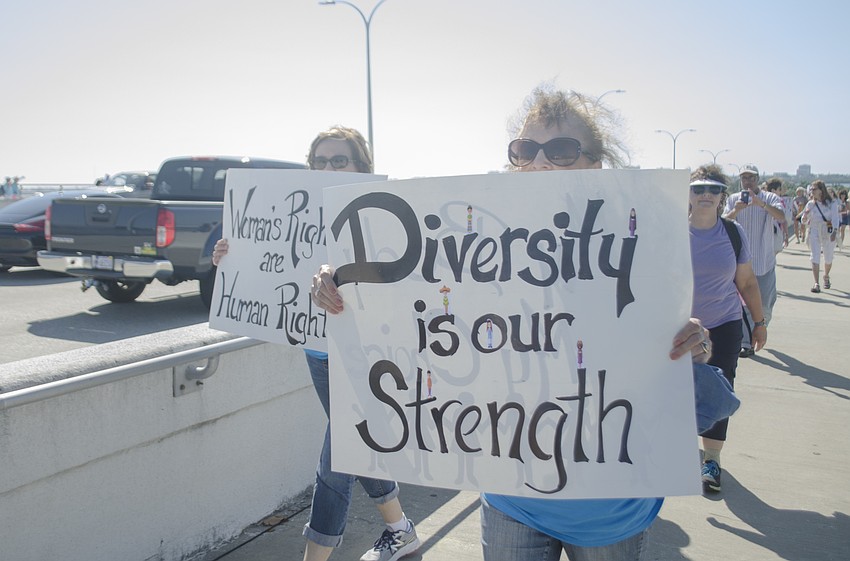 Woman's Righ
are
Human Right
Diversity
is our
Strength